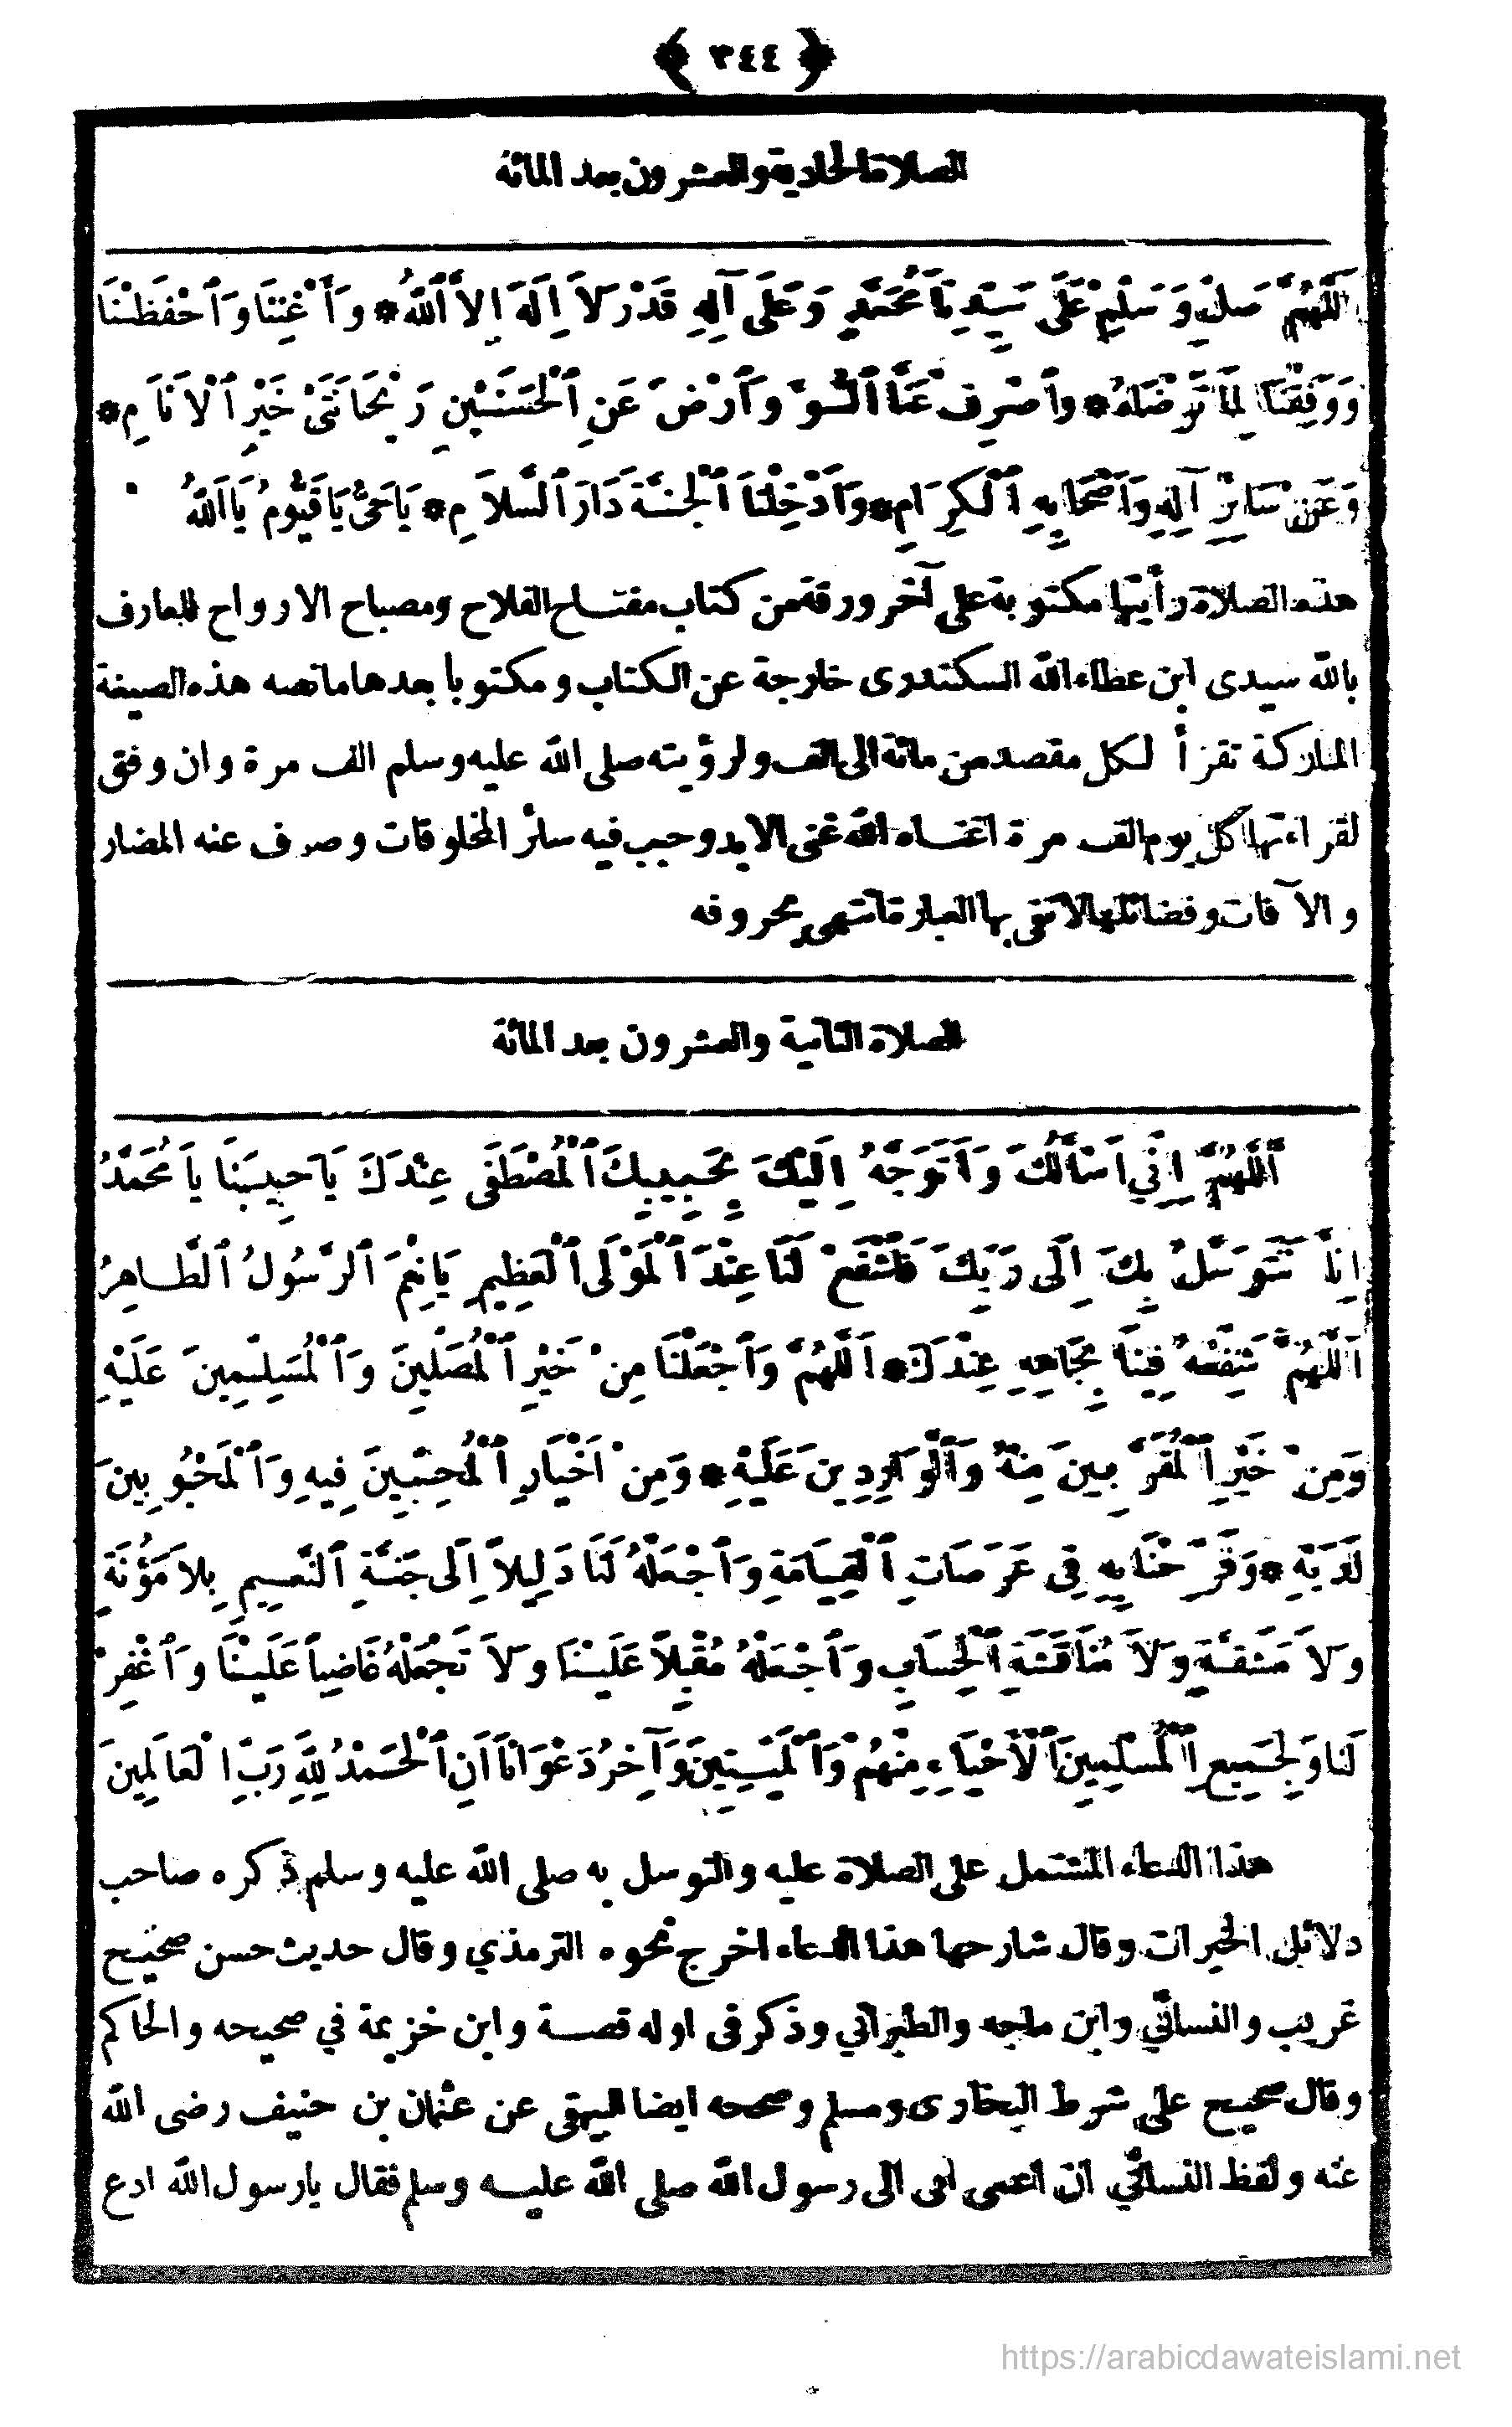 ﴿ ٣٤٤ ﴾
الصلاة الحادية والعشرون بعد المائة
اَللّٰهُمَّ صَلِّ وَسَلِّمْ عَلَى سَيِّدِنَا مُحَمَّدٍ وَعَلَى آلِهِ قَدْرَ لاَ اِلَهَ اِلاَّ ٱللهُ * وَأَغْنِنَا وَٱحْفَظْنَا
وَوَفِّقْنَا لِمَا تَرْضَاهُ * وَٱصْرِفْ عَنَّا ٱلسُّوَّ وَٱرْضَ عَنِ ٱلْحَسَنَيْنِ رَيْحَانَتَيْ خَيْرِ ٱلْاَنَامِ *
وَعَنْ سَائِرِ آلِهِ وَاَصْحَابِهِ ٱلْكِرَامِ * وَاَدْخِلْنَا ٱلْجَنَّةَ دَارَ ٱلسَّلاَمِ * يَاحَيُّ يَاقَيُّومُ يَااَللهُ
هذه الصلاة رأيتها مكتوبة على آخر ورقة من كتاب مفتاح الفلاح ومصباح الارواح للعارف
بالله سيدى ابن عطاء الله السكندرى خارجة عن الكتاب ومكتوبا بعدها مانصه هذه الصيغة
المباركة تقرأ لكل مقصد من مائة الى الف ولرؤيته صلى الله عليه وسلم الف مرة وان وفق
لقراءتها كل يوم الف مرة اغناه الله غنى الابد وحبب فيه سائر المخلوقات وصرف عنه المضار
والآفات وفضائلها لاتفى بها العبارة انتهى بحروفه
الصلاة الثانية والعشرون بعد المائة
اَللّٰهُمَّ اِنِّي اَسْاَلُكَ وَاَتَوَجَّهُ اِلَيْكَ بِحَبِيبِكَ ٱلْمُصْطَفَى عِنْدَكَ يَاحَبِيبَنَا يَامُحَمَّدُ
اِنَّا نَتَوَسَّلُ بِكَ اِلَى رَبِّكَ فَاشْفَعْ لَنَا عِنْدَ ٱلْمَوْلَى ٱلْعَظِيمِ يَانِعْمَ ٱلرَّسُولُ ٱلطَّاهِرُ
اَللّٰهُمَّ شَفِّعْهُ فِينَا بِجَاهِهِ عِنْدَكَ * اَللّٰهُمَّ وَٱجْعَلْنَا مِنْ خَيْرِ ٱلْمُصَلِّينَ وَٱلْمُسَلِّمِينَ عَلَيْهِ
وَمِنْ خَيْرِ ٱلْمُقَرَّبِينَ مِنْهُ وَٱلْوَارِدِينَ عَلَيْهِ * وَمِنْ اَخْيَارِ ٱلْمُحِبِّينَ فِيهِ وَٱلْمَحْبُوبِينَ
لَدَيْهِ * وَفَرِّحْنَا بِهِ فِى عَرَصَاتِ ٱلْقِيَامَةِ وَٱجْعَلْهُ لَنَا دَلِيلاً اِلَى جَنَّةِ ٱلنَّعِيمِ بِلاَ مَؤُنَةٍ
وَلاَ مَشَقَّةٍ وَلاَ مُنَاقَشَةِ ٱلْحِسَابِ وَٱجْعَلْهُ مُقْبِلاً عَلَيْنَا وَلاَ تَجْعَلْهُ غَاضِباً عَلَيْنَا وَٱغْفِرْ
لَنَا وَلِجَمِيعِ ٱلْمُسْلِمِينَ ٱلْأَحْيَاءِ مِنْهُمْ وَٱلْمَيِّتِينَ وَآخِرُ دَعْوَانَا اَنِ ٱلْحَمْدُ لِلّٰهِ رَبِّ الْعَالَمِينَ
هذا الدعاء المشتمل على الصلاة عليه والتوسل به صلى الله عليه وسلم ذكره صاحب
دلائل الخيرات وقال شارحها هذا الدعاء اخرج نحوه الترمذي وقال حديث حسن صحيح
غريب والنسائي وابن ماجه والطبراني وذكر فى اوله قصة وابن خزيمة في صحيحه والحاكم
وقال صحيح على شرط البخارى ومسلم وصححه ايضا البيهقى عن عثمان بن حنيف رضى الله
عنه ولفظ النسائي ان اعمى اتى الى رسول الله صلى الله عليه وسلم فقال يارسول الله ادع
https://arabicdawateislami.net